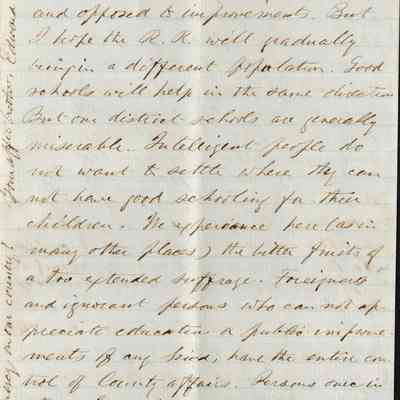 and opposed to improvements. But
I hope the R. R. will gradually
bring in a different population. Good
schools will help in the same direction
But our district schools are generally
miserable. Intelligent people do
not want to settle where they can
not have good schooling for their
children. We experience here (as in
many other places) the bitter fruits of
a too extended suffrage. Foreigners
and ignorant persons who can not ap-
preciate education or public improve-
ments of any kind, have the entire con-
trol of County affairs. Persons once in
on our country?
Your affec brother, Edward